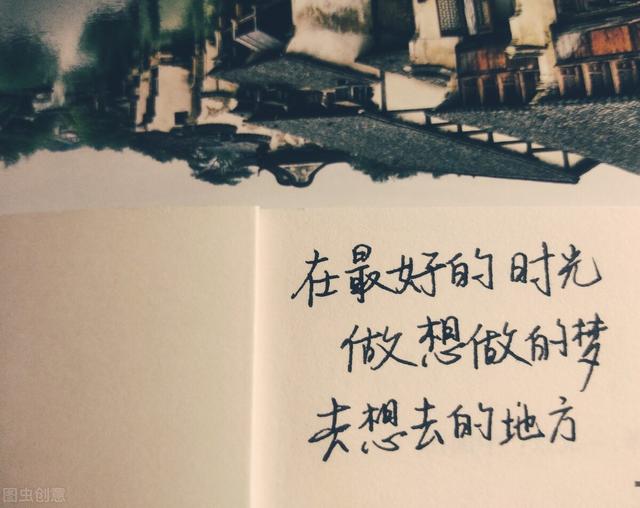 在最好的时光
做想做的梦
去想去的地方
图虫创意